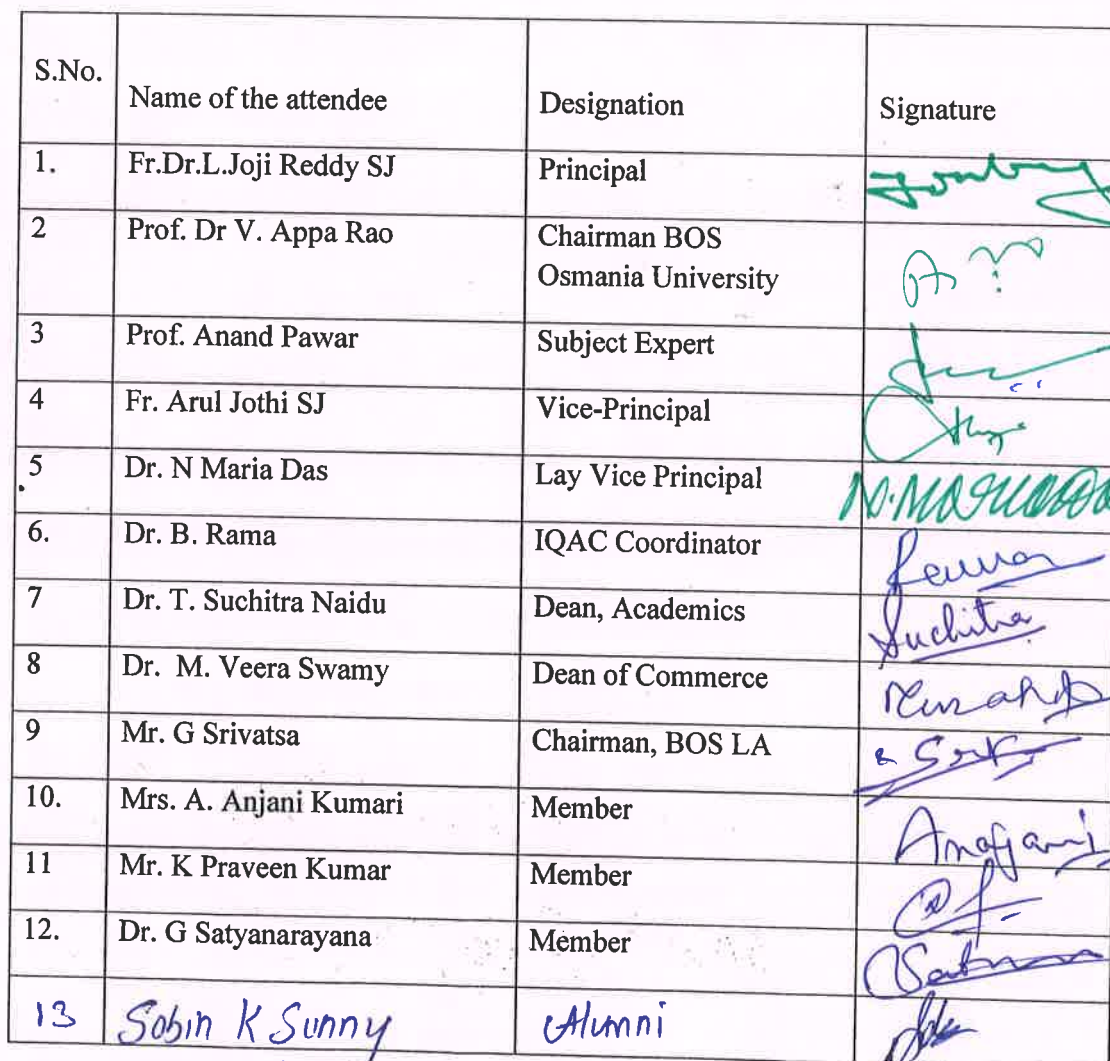 S.No. Name of the attendee Designation Signature
1. Fr.Dr.L.Joji Reddy SJ Principal
2 Prof. Dr V. Appa Rao Chairman BOS
Osmania University
3 Prof. Anand Pawar Subject Expert
4 Fr. Arul Jothi SJ Vice-Principal
5 Dr. N Maria Das Lay Vice Principal
6. Dr. B. Rama IQAC Coordinator
7 Dr. T. Suchitra Naidu Dean, Academics Suchitra
8 Dr. M. Veera Swamy Dean of Commerce
9 Mr. G Srivatsa Chairman, BOS LA
10. Mrs. A. Anjani Kumari Member
11 Mr. K Praveen Kumar Member
12. Dr. G Satyanarayana Member
13 Sobin K Sunny Alumni